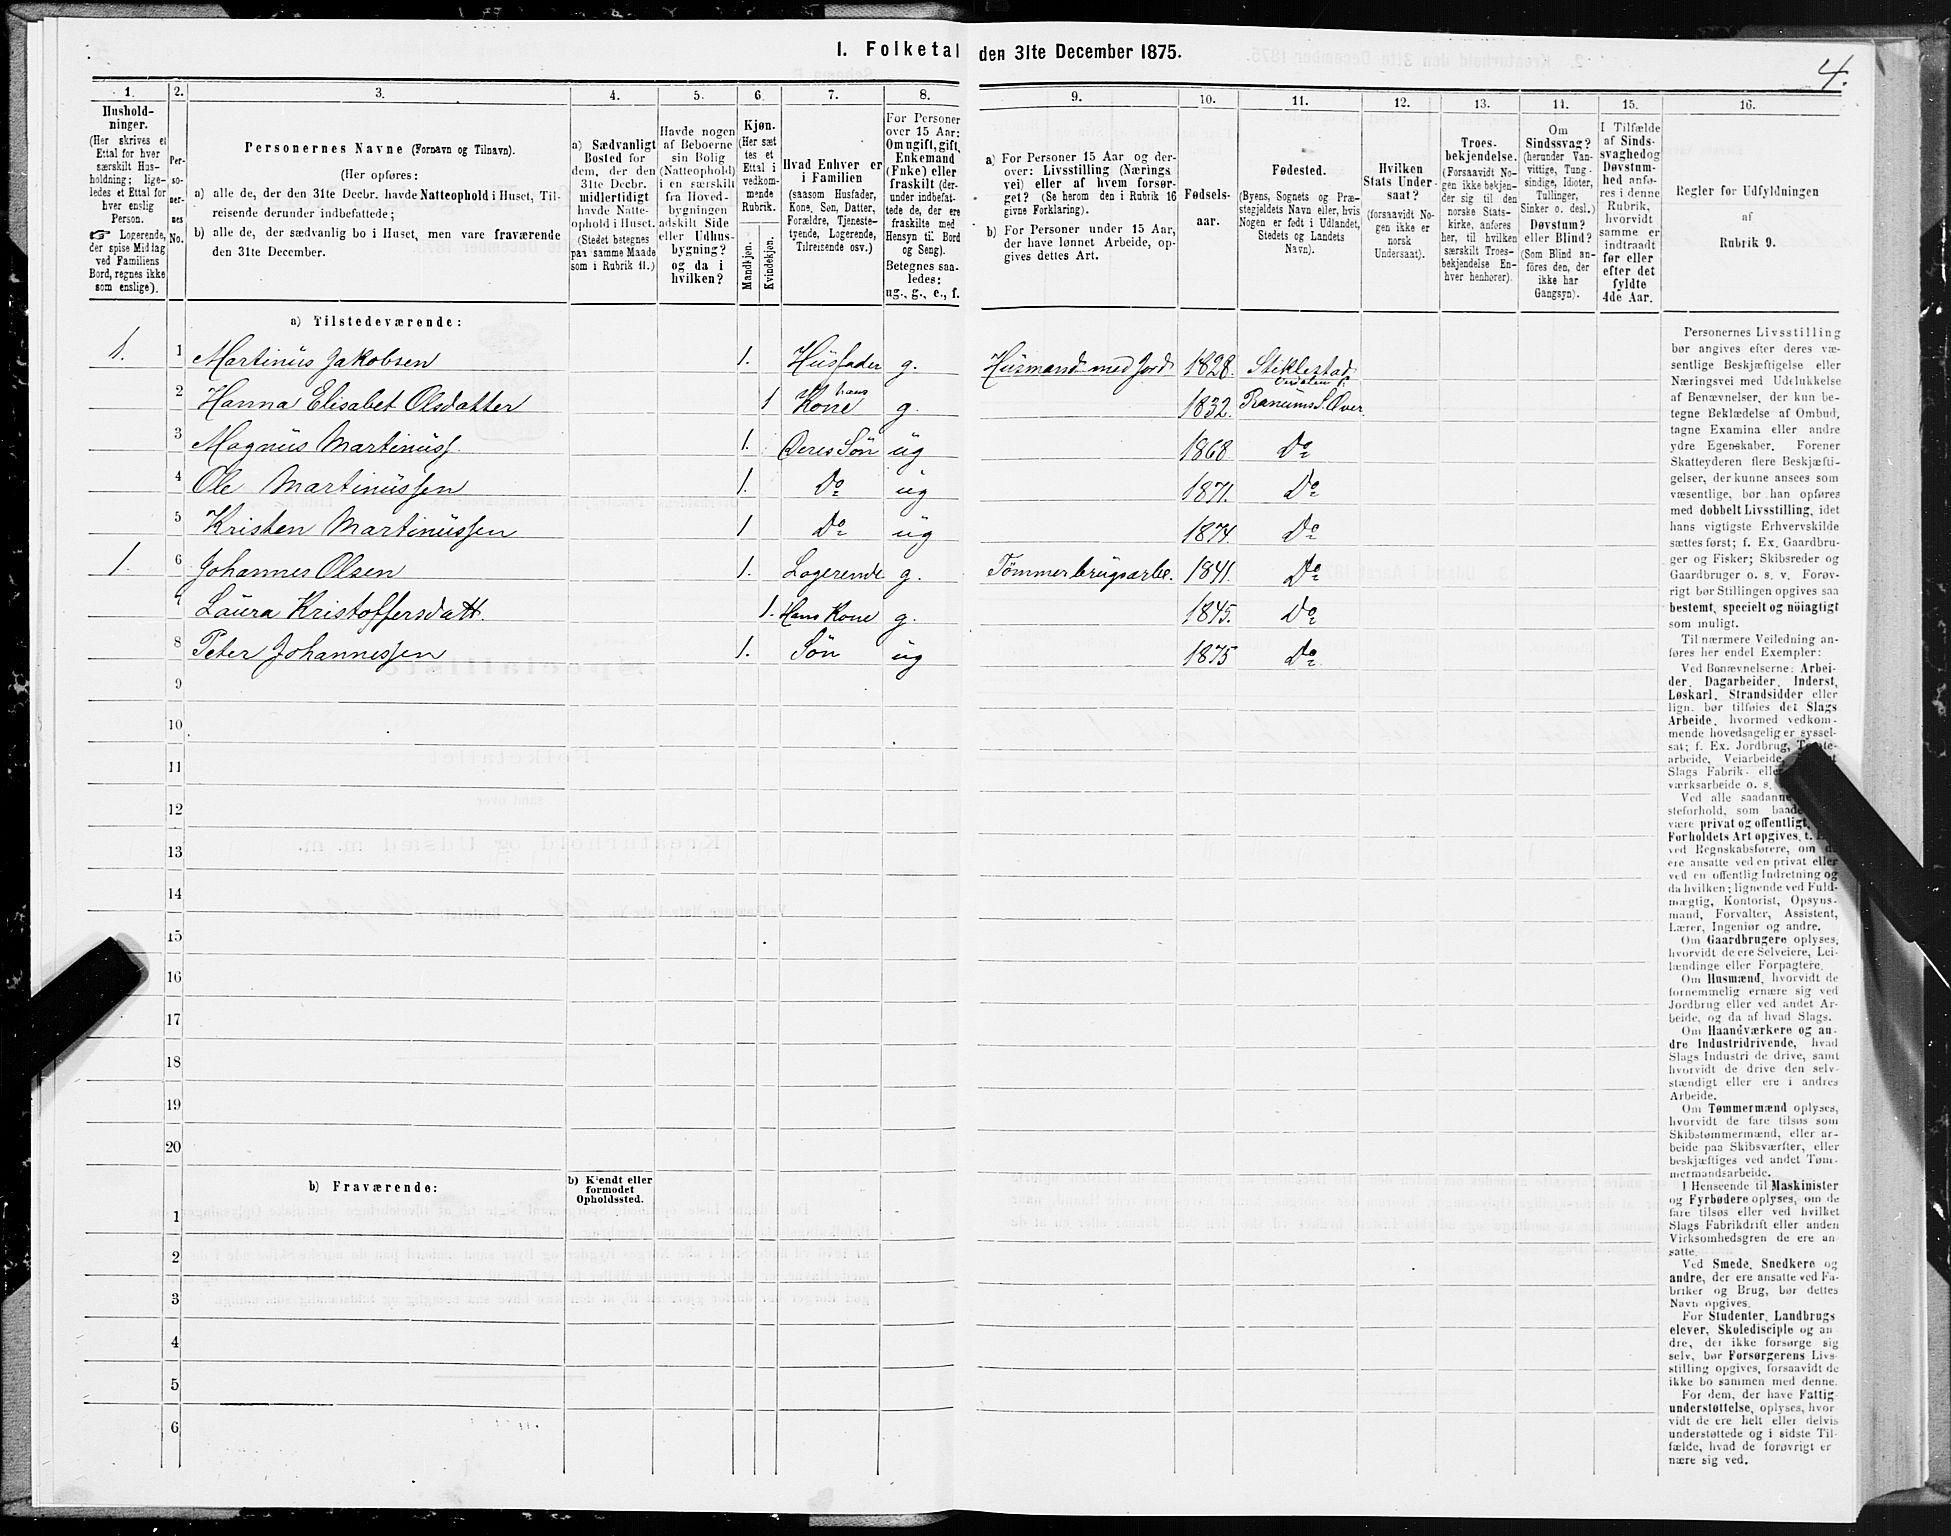 1. Folketal den 31te December 1875.
4.
1.
Hushold-
ninger.
(Her skrives et
Ettal for hver
særskilt Hus-
holdning; lige-
ledes et Ettal for
hver enslig
Person.
☞ Logerende,
der spise Middag
ved Familiens
Bord, regnes ikke
som enslige).
2.
Per-
so-
ner-
nes
No.
3.
Personernes Navne (Fornavn og Tilnavn).
(Her opføres:
a) alle de, der den 31te Decbr. havde Natteophold i Huset, Til-
reisende derunder indbefattede;
b) alle de, der sædvanlig bo i Huset, men vare fraværende
den 31te December.
4.
a) Sædvanligt
Bosted for
dem, der den
31te Decbr.
midlertidigt
havde Natte-
ophold i Huset.
(Stedet betegnes
paa samme Maade
som i Rubrik 11.)
5.
Havde nogen
af Beboerne
sin Bolig
(Natteophold)
i en særskilt
fra Hoved-
bygningen
adskilt Side
eller Udhus-
bygning?
og da i
hvilken?
6.
Kjøn.
(Her sæt
tes et
Ettal i
vedkom-
mende
Rubrik.
Mandkjøn.
Kvindekjøn.
7.
Hvad Enhver er
i Familien
(saasom Husfader,
Kone, Søn, Datter,
Forældre, Tjeneste-
tyende, Logerende,
Tilreisende osv.)
8.
For Personer
over 15 Aar:
Om ugift, gift,
Enkemand
(Enke) eller
fraskilt (der-
under indbefat-
tede de, der ere
fraskilte med
Hensyn til Bord
og Seng).
Betegnes saa-
ledes:
ug., g., e., f.
9.
a) For Personer 15 Aar og der-
over: Livsstilling (Nærings
vei) eller af hvem forsør-
get? (Se herom den i Rubrik 16
givne Forklaring).
b) For Personer under 15 Aar,
der have lønnet Arbeide, op-
gives dettes Art.
10.
Fødsels-
aar.
11.
Fødested.
(Byens, Sognets og Præ-
stegjeldets Navn eller, hvis
Nogen er født i Udlandet,
Stedets og Landets
Navn).
12.
Hvilken
Stats Under-
saat?
(forsaavidt No-
gen ikke er
norsk
Undersaat).
13.
Troes-
bekjendelse.
(Forsaavidt No-
gen ikke bekjen-
der sig til den
norske Stats-
kirke, anføres
her, til hvilken
særskilt Troes-
bekjendelse En-
hver henhører).
14.
Om
Sindssvag?
(herunder Van-
vittige, Tung-
sindige, Idioter,
Tullinger,
Sinker o. desl.)
Døvstum?
eller Blind?
(Som Blind an-
føres den, der
ikke har
Gangsyn).
15.
I Tilfælde
af Sinds-
svaghed og
Døvstum-
hed anfø-
res i denne
Rubrik,
hvorvidt
samme er
indtraadt
før eller
efter det
fyldte
4de Aar.
16.
Regler for Udfyldningen
af
Rubrik 9.
a) Tilstedeværende:
1. 1 Martinus Jakobsen 1. Husfader g. Husmand med Jord 1828. Stiklestad
2 Hanna Elisabet Olsdatter 1 hans Kone g. 1832. Ranums S. Over
3 Magnus Martinuss. 1. Deres Søn ug 1868 Do
4 Ole Martinussen 1. Do ug 1871. Do
5 Kristen Martinussen 1 Do ug 1874. Do
1. 6 Johannes Olsen 1. Logerende g. Tømmerbrugsarbe. 1841. Do
7 Laura Kristoffersdatt. 1. Hans Kone g. 1845. Do
8 Peter Johannessen 1. Søn ug 1875 Do
9
10
11
12
13
14
15
16
17
18
19
20
b) Fraværende:
b) Kjendt eller
formodet
Opholdssted.
1
2
3
4
5
6
Personernes Livsstilling
bør angives efter deres væ-
sentlige Beskjæftigelse eller
Næringsvei med Udelukkelse
af Benævnelser, der kun be-
tegne Beklædelse af Ombud,
tagne Examina eller andre
ydre Egenskaber. Forener
Skatteyderen flere Beskjæfti-
gelser, der kunne ansees som
væsentlige, bør han opføres
med dobbelt Livsstilling, idet
hans vigtigste Erhvervskilde
sættes først; f. Ex. Gaardbru-
ger og Fisker; Skibsreder og
Gaardbruger o. s. v. Forøv-
rigt bør Stillingen opgives saa
bestemt, specielt og nöiagtigt
som muligt.
Til nærmere Veiledning an-
føres her endel Exempler:
Ved Benævnelserne: Arbei-
der, Dagarbeider, Inderst,
Løskarl, Strandsidder eller
lign. bør tilføies det Slags
Arbeide, hvormed vedkom-
mende hovedsagelig er syssel-
sat; f. Ex. Jordbrug,
arbeide, Veiarbeide,
Slags Fabrik- eller
værksarbeide o. s.
Ved alle saadanne
steforhold, som baade
være privat og offentligt,
Forholdets Art opgives, t.
ved Regnskabsførere, om
ere ansatte ved en privat eller
ved en offentlig Indretning og
da hvilken; lignende ved Fuld-
mægtig, Kontorist, Opsyns-
mand, Forvalter, Assistent,
Lærer, Ingeniør og andre.
Om Gaardbrugere oplyses,
hvorvidt de ere Selveiere, Lei-
lændinge eller Forpagtere.
Om Husmænd, hvorvidt de
fornemmelig ernære sig ved
Jordbrug eller ved andet Ar-
beide, og da af hvad Slags.
Om Haandværkere og an-
dre Industridrivende, hvad
Slags Industri de drive, samt
hvorvidt de drive den selv-
stændigt eller ere i andres
Arbeide.
Om Tømmermænd oplyses,
hvorvidt de fare tilsøs som
Skibstømmermænd, eller ar-
beide paa Skibsværfter, eller
beskjæftiges ved andet Tøm-
mermandsarbeide.
I Henseende til Maskinister
og Fyrbødere oplyses, om de
fare tilsøs eller ved hvilket
Slags Fabrikdrift eller anden
Virksomhedsgren de ere an-
satte.
Ved Smede, Snedkere og
andre, der ere ansatte ved Fa-
briker og Brug, bør dettes
Navn opgives.
For Studenter, Landbrugs
elever, Skoledisciple og an-
dre, der ikke forsørge sig
selv, bør Forsørgerens Livs-
stilling opgives, forsaavidt de
ikke bo sammen med denne.
For dem, der have Fattig-
understøttelse, oplyses, hvor-
vidt de ere helt eller delvis
understøttede og i sidste Til-
fælde, hvad de forøvrigt er
nære sig ved.